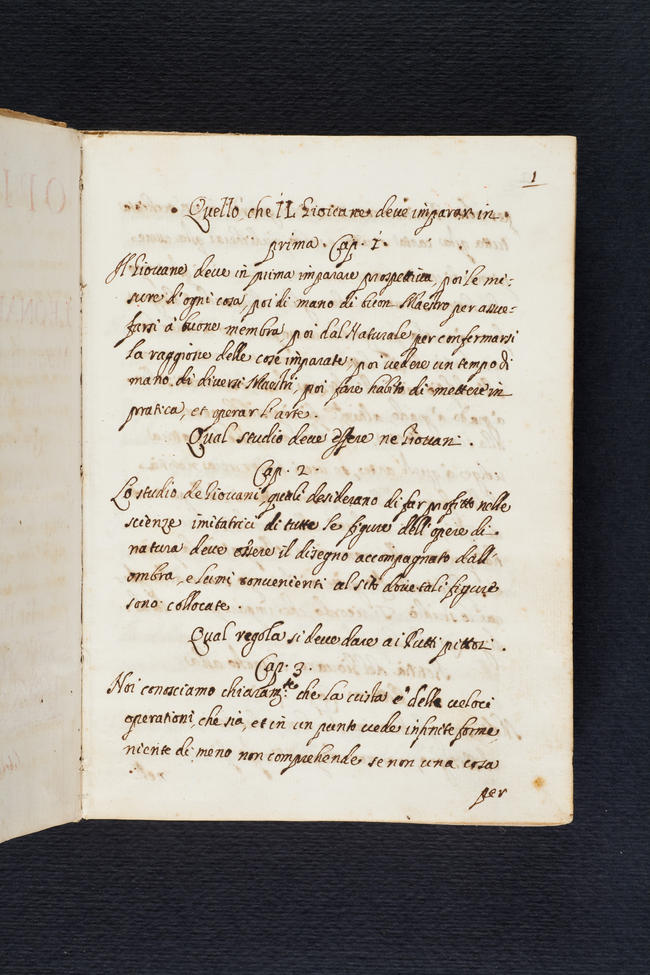 OPI
LEONAR
1
Quello che iL Giovane deve imparar in
prima. Cap. 1.
Il Giovane deve in prima imparare prospettiva, poi le mi-
sure d'ogni cosa, poi di mano di buon Maestro per assue-
farsi à buone membra, poi dal Naturale per confermarsi
la raggione delle cose imparate; poi vedere un tempo di
mano di diversi Maestri, poi fare habito di mettere in
pratica, et operar l'arte.
Qual studio deve essere ne Giovani.
Cap. 2.
Lo studio de Giovani, quali desiderano di far profitto nelle
scienze imitatrici di tutte le figure dell'opere di
natura deve essere il disegno accompagnato dall'
ombra, e lumi convenienti al sito dove tali figure
sono collocate.
Qual regola si deve dare ai Putti pittori.
Cap. 3.
Noi conosciamo chiaram:te che la vista é delle veloci
operationi, che sia, et in un punto vede infinite forme,
niente di meno non comprehende se non una cosa
per